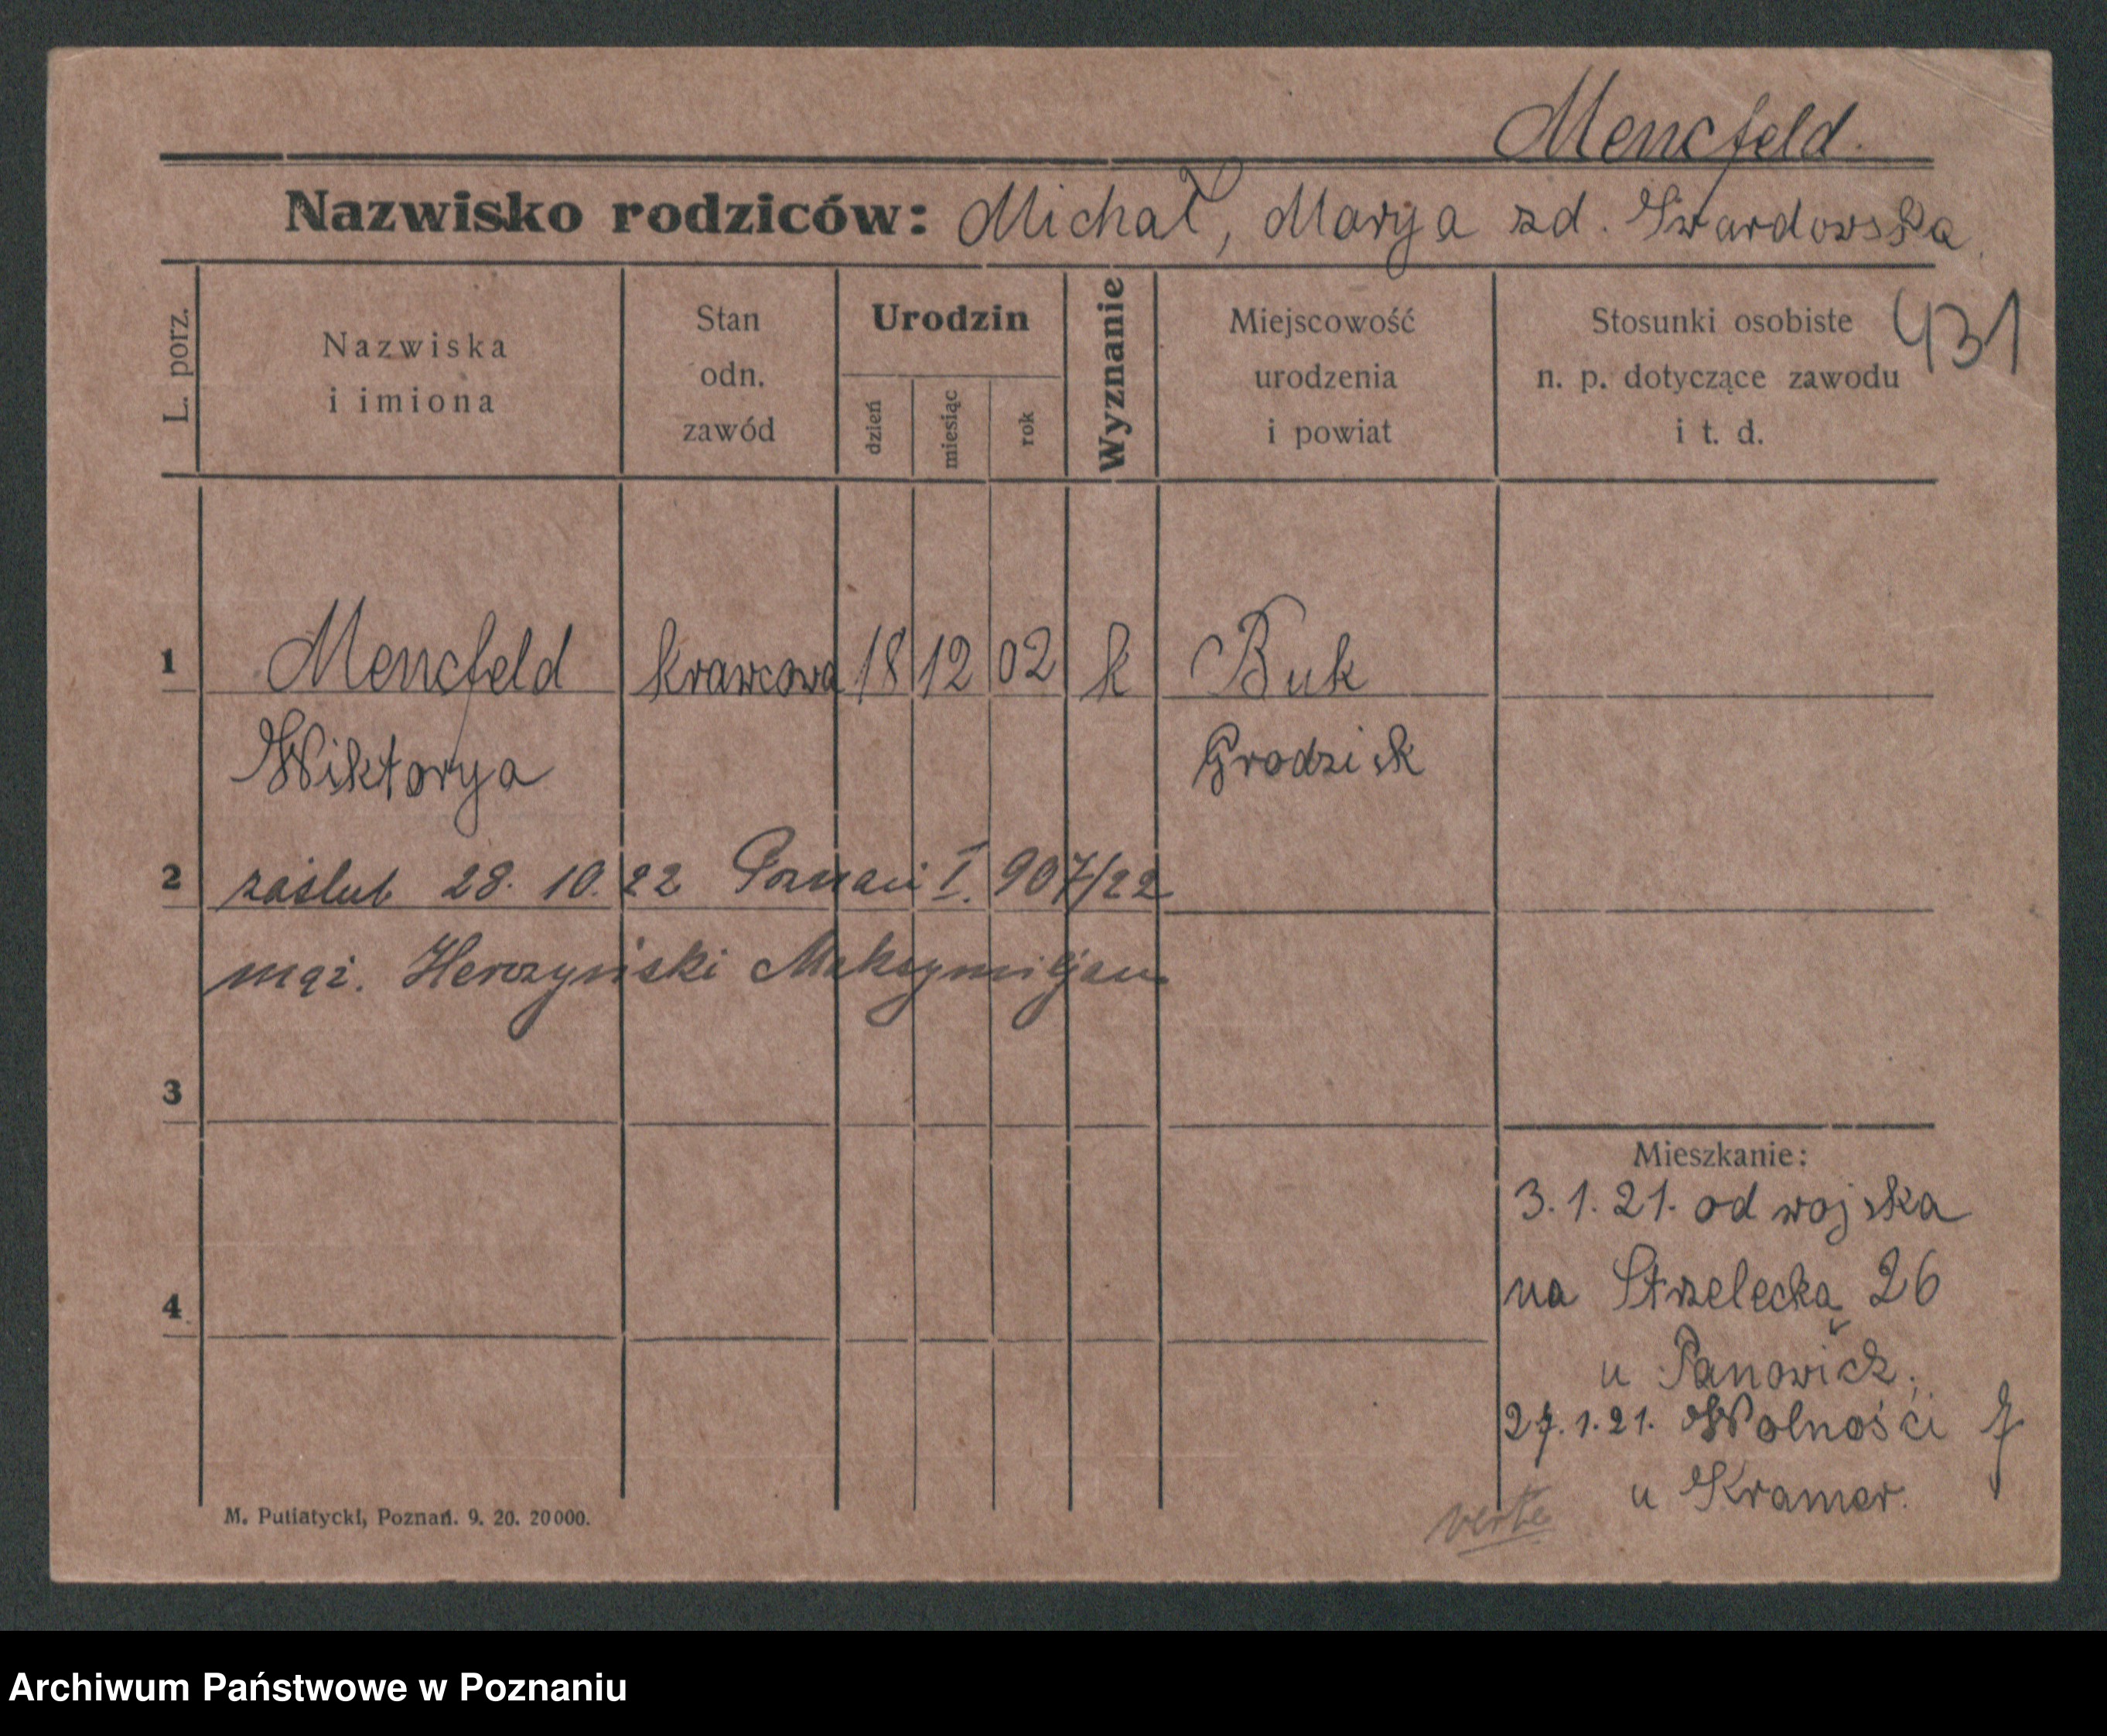 Mencfeld.
Nazwisko rodziców: Michał, Marya zd. Twardowska
431
L. porz.
Nazwiska i imiona
Stan odn. zawód
Urodzin
dzień
miesiąc
rok
Wyznanie
Miejscowość urodzenia i powiat
Stosunki osobiste n. p. dotyczące zawodu i t. d.
1 Mencfeld krawcowa 18 12 02 k Buk
Wiktorya Grodzisk
2 zaślub 28. 10. 22 Poznań I. 907/22
mąż. Herczyński Maksymiljan
3
4
Mieszkanie:
3. 1. 21. od wojska
na Strzelecką 26
u Panowicz,
27. 1. 21. Wolności 7
u Kramer.
verte
M. Putiatycki, Poznań. 9. 20. 20000.
Archiwum Państwowe w Poznaniu